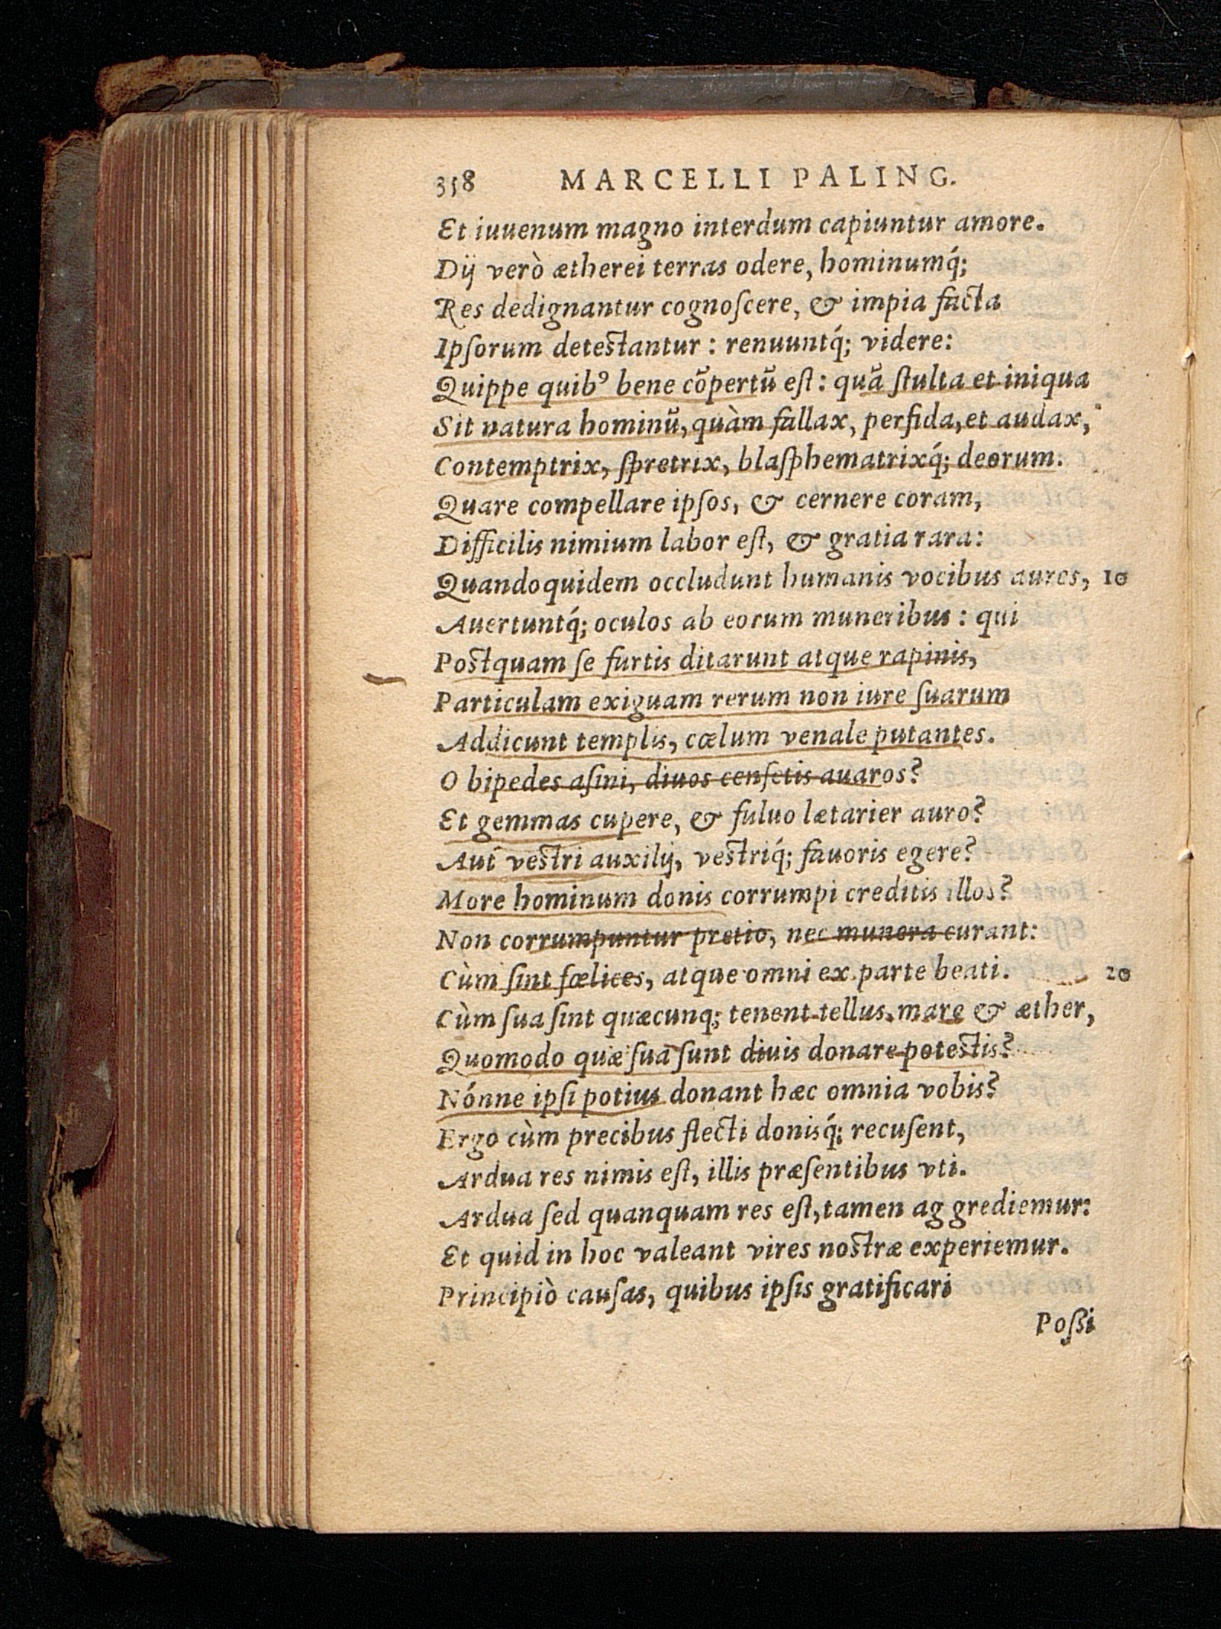 358 MARCELLI PALING.
Et iuuenum magno interdum capiuntur amore.
Dij verò ætherei terras odere, hominumq́;
Res dedignantur cognoſcere, & impia facta
Ipſorum deteſtantur : renuuntq́; videre:
Quippe quibꝰ bene cōpertū eſt : quā ſtulta et iniqua
Sit natura hominū, quàm fallax, perfida, et audax,
Contemptrix, ſpretrix, blaſphematrixq́; deorum.
Quare compellare ipſos, & cernere coram,
Difficilis nimium labor eſt, & gratia rara:
Quandoquidem occludunt humanis vocibus aures, 10
Auertuntq́; oculos ab eorum muneribus : qui
Poſtquam ſe furtis ditarunt atque rapinis,
Particulam exiguam rerum non iure ſuarum
Addicunt templis, cœlum venale putantes.
O bipedes aſini, diuos cenſetis auaros?
Et gemmas cupere, & fuluo lætarier auro?
Aut veſtri auxilij, veſtriq́; fauoris egere?
More hominum donis corrumpi creditis illos?
Non corrumpuntur pretio, nec munera curant:
Cùm ſint fœlices, atque omni ex parte beati. 20
Cùm ſua ſint quæcunq; tenent tellus, mare & æther,
Quomodo quæ ſua ſunt diuis donare poteſtis?
Nónne ipſi potius donant hæc omnia vobis?
Ergo cùm precibus flecti donisq́; recuſent,
Ardua res nimis eſt, illis præſentibus vti.
Ardua ſed quanquam res eſt, tamen aggrediemur:
Et quid in hoc valeant vires noſtræ experiemur.
Principiò cauſas, quibus ipſis gratificari
Poßi